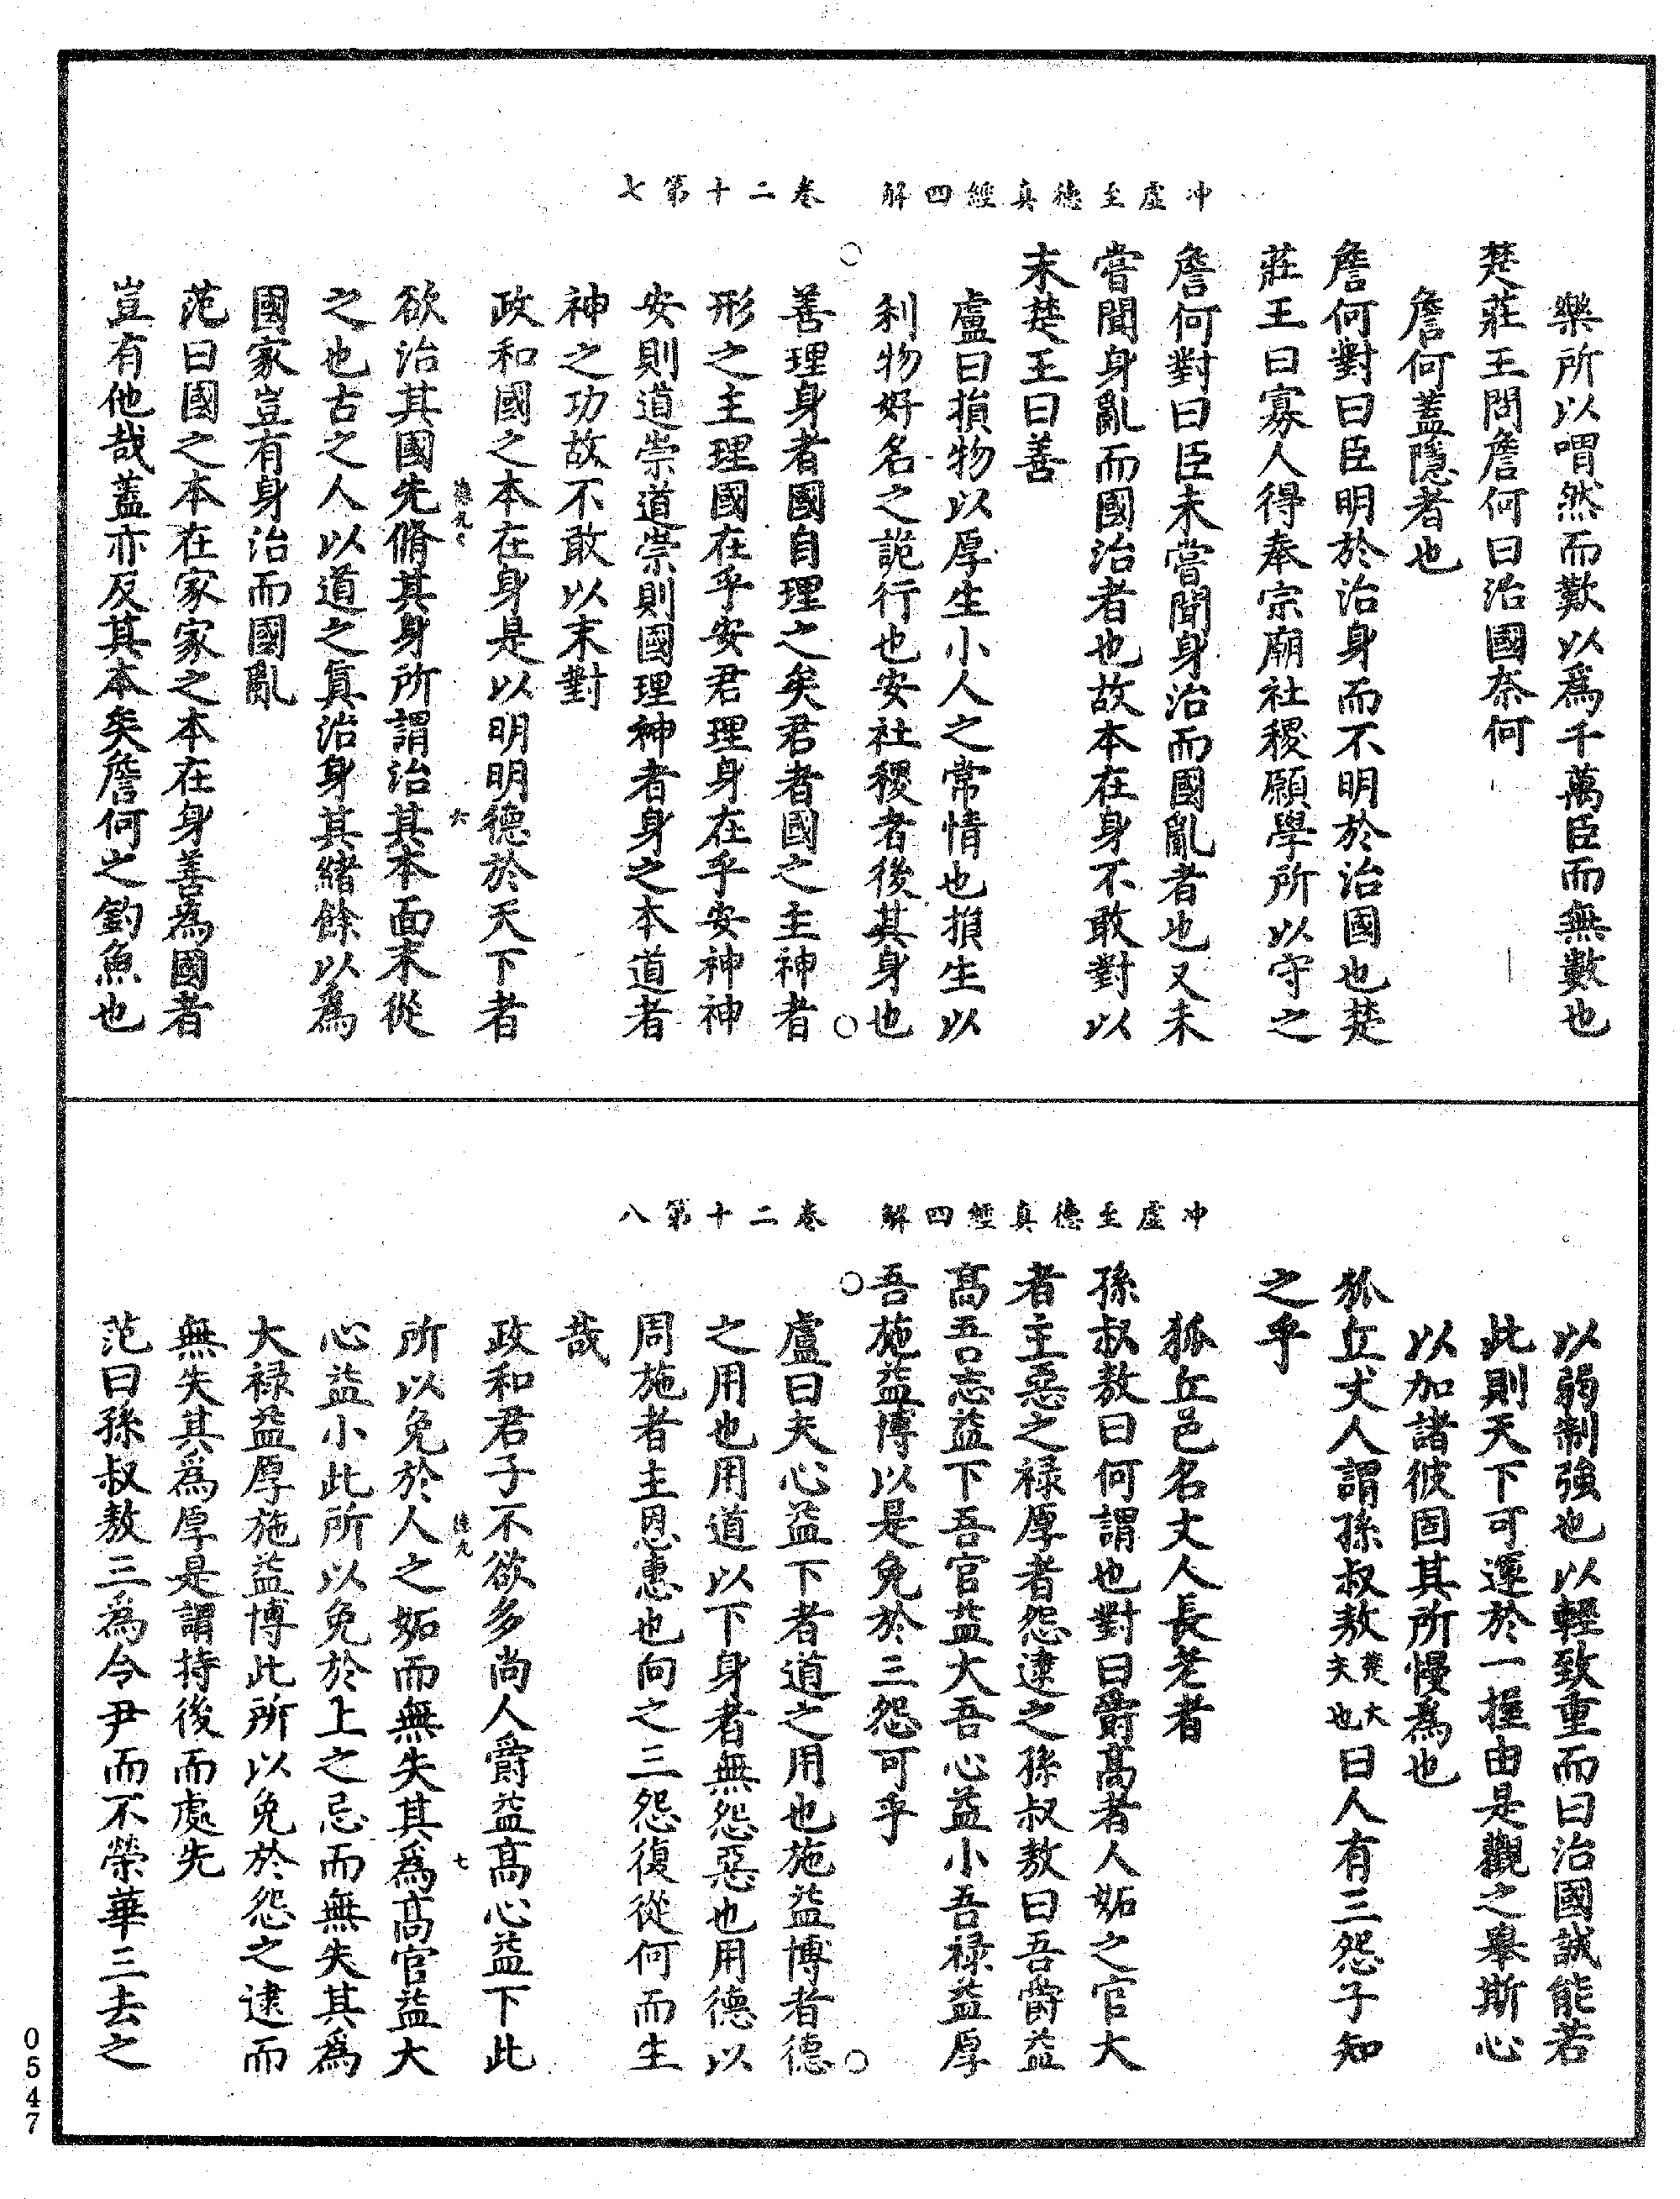 冲虛至德真經四解　卷二十第七
樂所以喟然而歎以爲千萬臣而無數也
楚莊王問詹何曰治國奈何
詹何蓋隱者也
詹何對曰臣明於治身而不明於治國也楚
莊王曰寡人得奉宗廟社稷願學所以守之
詹何對曰臣未嘗聞身治而國亂者也又未
嘗聞身亂而國治者也故本在身不敢對以
末楚王曰善
盧曰損物以厚生小人之常情也損生以
利物好名之詭行也安社稷者後其身也
善理身者國自理之矣君者國之主神者
形之主理國在乎安君理身在乎安神神
安則道崇道崇則國理神者身之本道者
神之功故不敢以末對
政和國之本在身是以明明德於天下者
德九七　六
欲治其國先脩其身所謂治其本面末從
之也古之人以道之真治身其緒餘以爲
國家豈有身治而國亂
范曰國之本在家家之本在身善為國者
豈有他哉蓋亦反其本矣詹何之釣魚也
冲虛至德真經四解　卷二十第八
以弱制強也以輕致重而曰治國誠能若
此則天下可運於一握由是觀之舉斯心
以加諸彼固其所慢爲也
狐丘丈人謂孫叔敖楚大夫也曰人有三怨子知
之乎
狐丘邑名丈人長老者
孫叔敖曰何謂也對曰爵高者人妬之官大
者主惡之祿厚者怨逮之孫叔敖曰吾爵益
高吾志益下吾官益大吾心益小吾祿益厚
吾施益博以是免於三怨可乎
盧曰夫心益下者道之用也施益博者德
之用也用道以下身者無怨惡也用德以
周施者主恩惠也向之三怨復從何而生
哉
政和君子不欲多尚人爵益高心益下此
德九　七
所以免於人之妬而無失其爲高官益大
心益小此所以免於上之忌而無失其爲
大祿益厚施益博此所以免於怨之逮而
無失其爲厚是謂持後而處先
范曰孫叔敖三為令尹而不榮華三去之
0547